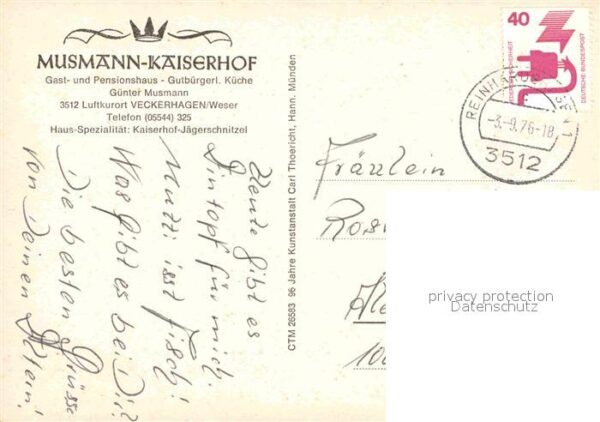 MUSMANN-KAISERHOF
Gast- und Pensionshaus - Gutbürgerl. Küche
Günter Musmann
3512 Luftkurort VECKERHAGEN/Weser
Telefon (05544) 325
Haus-Spezialität: Kaiserhof-Jägerschnitzel
Heute gibt es
Eintopf für mich.
Mutti isst Fisch!
Was gibt es bei Dir?
Die besten Grüsse
von Deinen Eltern!
CTM 26583 96 Jahre Kunstanstalt Carl Thoericht, Hann. Münden
40
DEUTSCHE BUNDESPOST
REINHARDSHAGEN 1
-3.-9.76-18
3512
Fräulein
privacy protection
Datenschutz